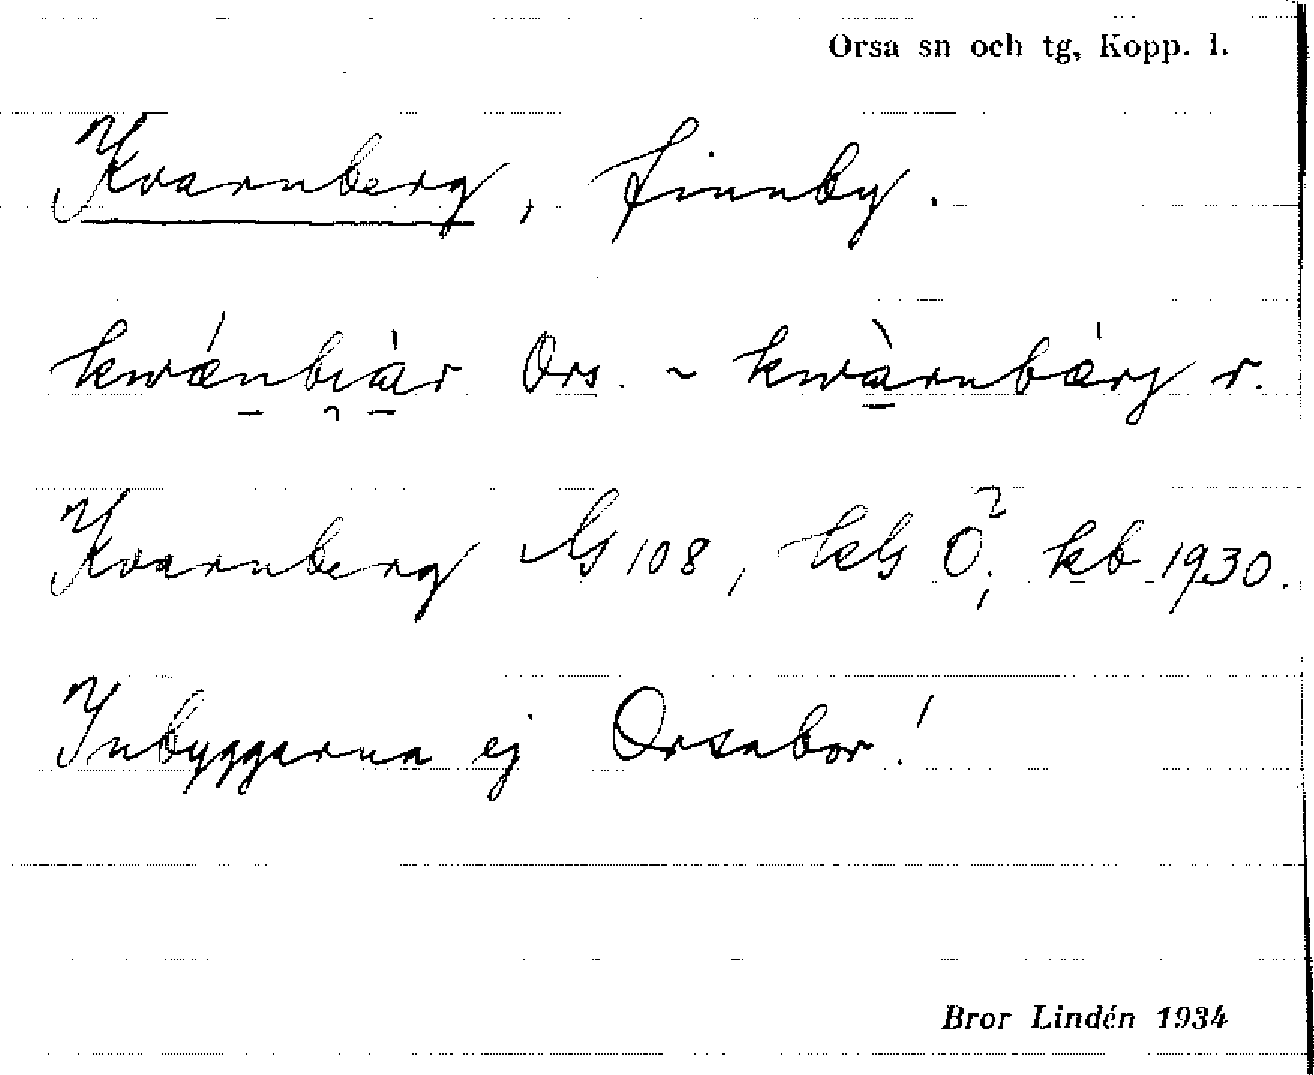 Orsa sn och tg, Kopp. l.
Kvarnberg, finnby.
kwǽnbiàr Ors. ~ kwàrnbárg r.
Kvarnberg bG 108, kG O²; kb 1930.
Inbyggarna ej Orsabor!
Bror Lindén 1934